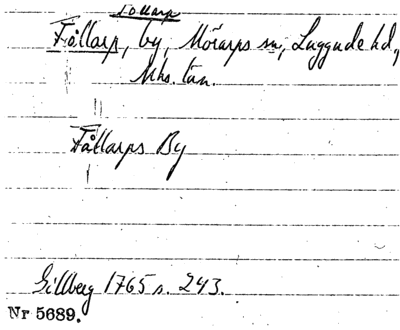 Tollarp
Tållarp, by, Mörarps sn, Luggude hd,
Mhs. län.
Tållarps By
Gillberg 1765 s. 243.
Nr 5689.